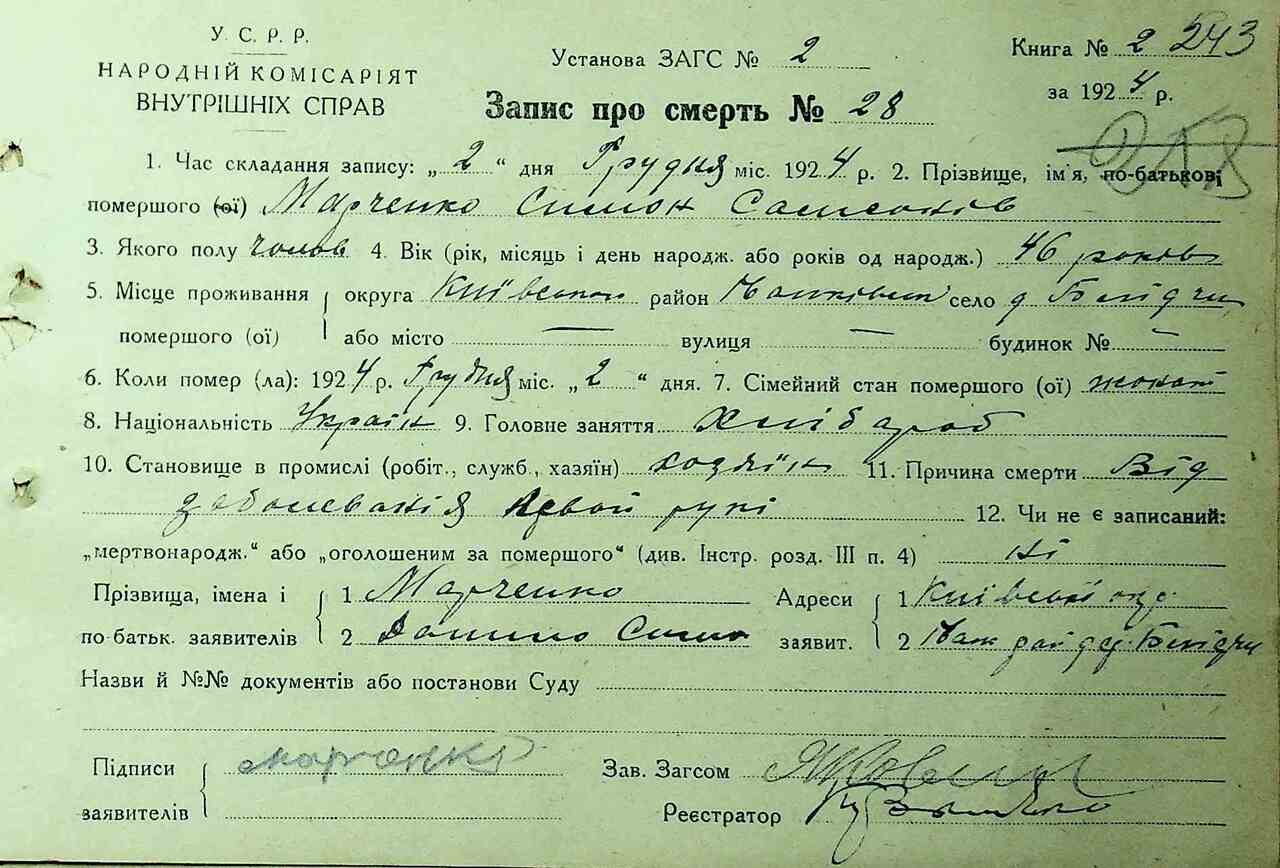 У. С. Р. Р.
НАРОДНІЙ КОМІСАРІЯТ
ВНУТРІШНІХ СПРАВ
Установа ЗАГС № 2
Книга № 2 243
за 1924 р.
Запис про смерть № 28
1. Час складання запису: „2“ дня Грудня міс. 1924 р. 2. Прізвище, ім'я, по-батькові
помершого (ої) Марченко Симон Самсонів
3. Якого полу чолов 4. Вік (рік, місяць і день народж. або років од народж.) 46 років
5. Місце проживання округа Київської район село д
помершого (ої) або місто — вулиця — будинок № —
6. Коли помер (ла): 1924 р. Грудня міс. „2“ дня. 7. Сімейний стан помершого (ої) жонат
8. Національність Україн 9. Головне заняття Хлібароб
10. Становище в промислі (робіт., служб., хазяїн) 11. Причина смерти Від
заболеванія левой рукі 12. Чи не є записаний:
„мертвонародж.“ або „оголошеним за помершого“ (див. Інстр. розд. III п. 4) ні
Прізвища, імена і 1 Марченко Адреси 1 Київської окр.
по батьк. заявителів 2 Данило Симо заявит. 2
Назви й №№ документів або постанови Суду
Підписи Марченко Зав. Загсом
заявителів Реєстратор